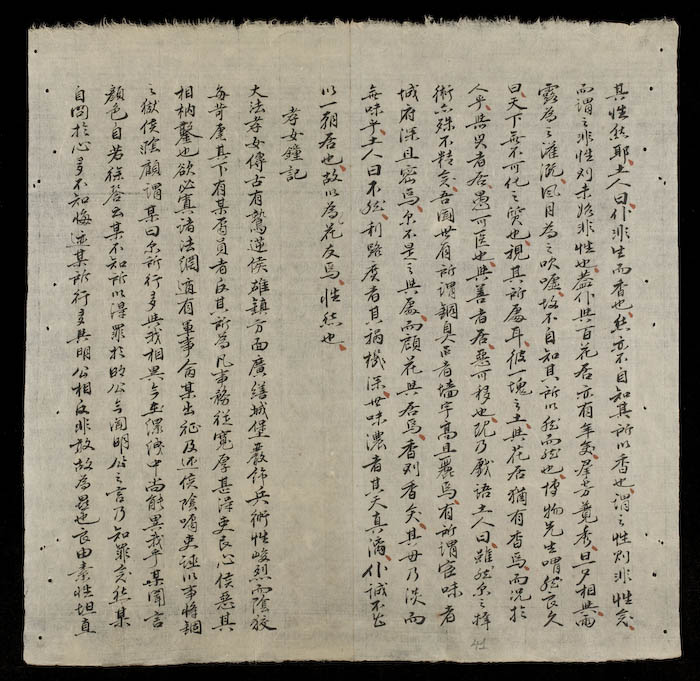 其性然耶土人曰仆非生而香也然亦不自知其所以香也謂之性則非性矣
而謂之非性則未始非性也蓋仆與百花居亦有年矣羣芳競秀旦夕相與雨
露為之灌沉風月為之吹噓故不自知其所以然而然也博物先生喟然良久
曰天下無不可化之質也視其所處耳彼一塊之土與花居猶有香焉而況於
人乎與賢者居愚可医也與善者居惡可移也既乃戲語土人曰雖然尔之擇
術亦殊不精矣吾國世有所謂銅臭居者墻宇高且麗焉有所謂宦味者
城府深且密焉尔不是之與處而顧花與居焉香則香矣其毋乃淡而
無味乎土人曰不然利路度者其禍機深世味濃者其天真漓仆誠不忍
以一朝居也故以為花友焉性然也
孝女鐘記
大法孝女傳古有鷔遜侯雄鎮方而廣繕城堡嚴飾兵術性峻烈而陰狡
每苛虐其下有某胥員者反其所為凡事務從寬厚甚得吏民心侯惡其
相枘鑿也欲必寘諸法網適有軍事侖某出征及还侯陰嗾吏誣以事將錮
之獄侯陰顧謂某曰尔所行多與我相異今在縲絏中尚能異我乎某聞言
顏色自若徐答云某不知所以得罪扵明公今聞明公之言乃知罪矣然某
自問扵心多不知悔迹某所行多與明公相反非敢故為異也良由素性坦直
41